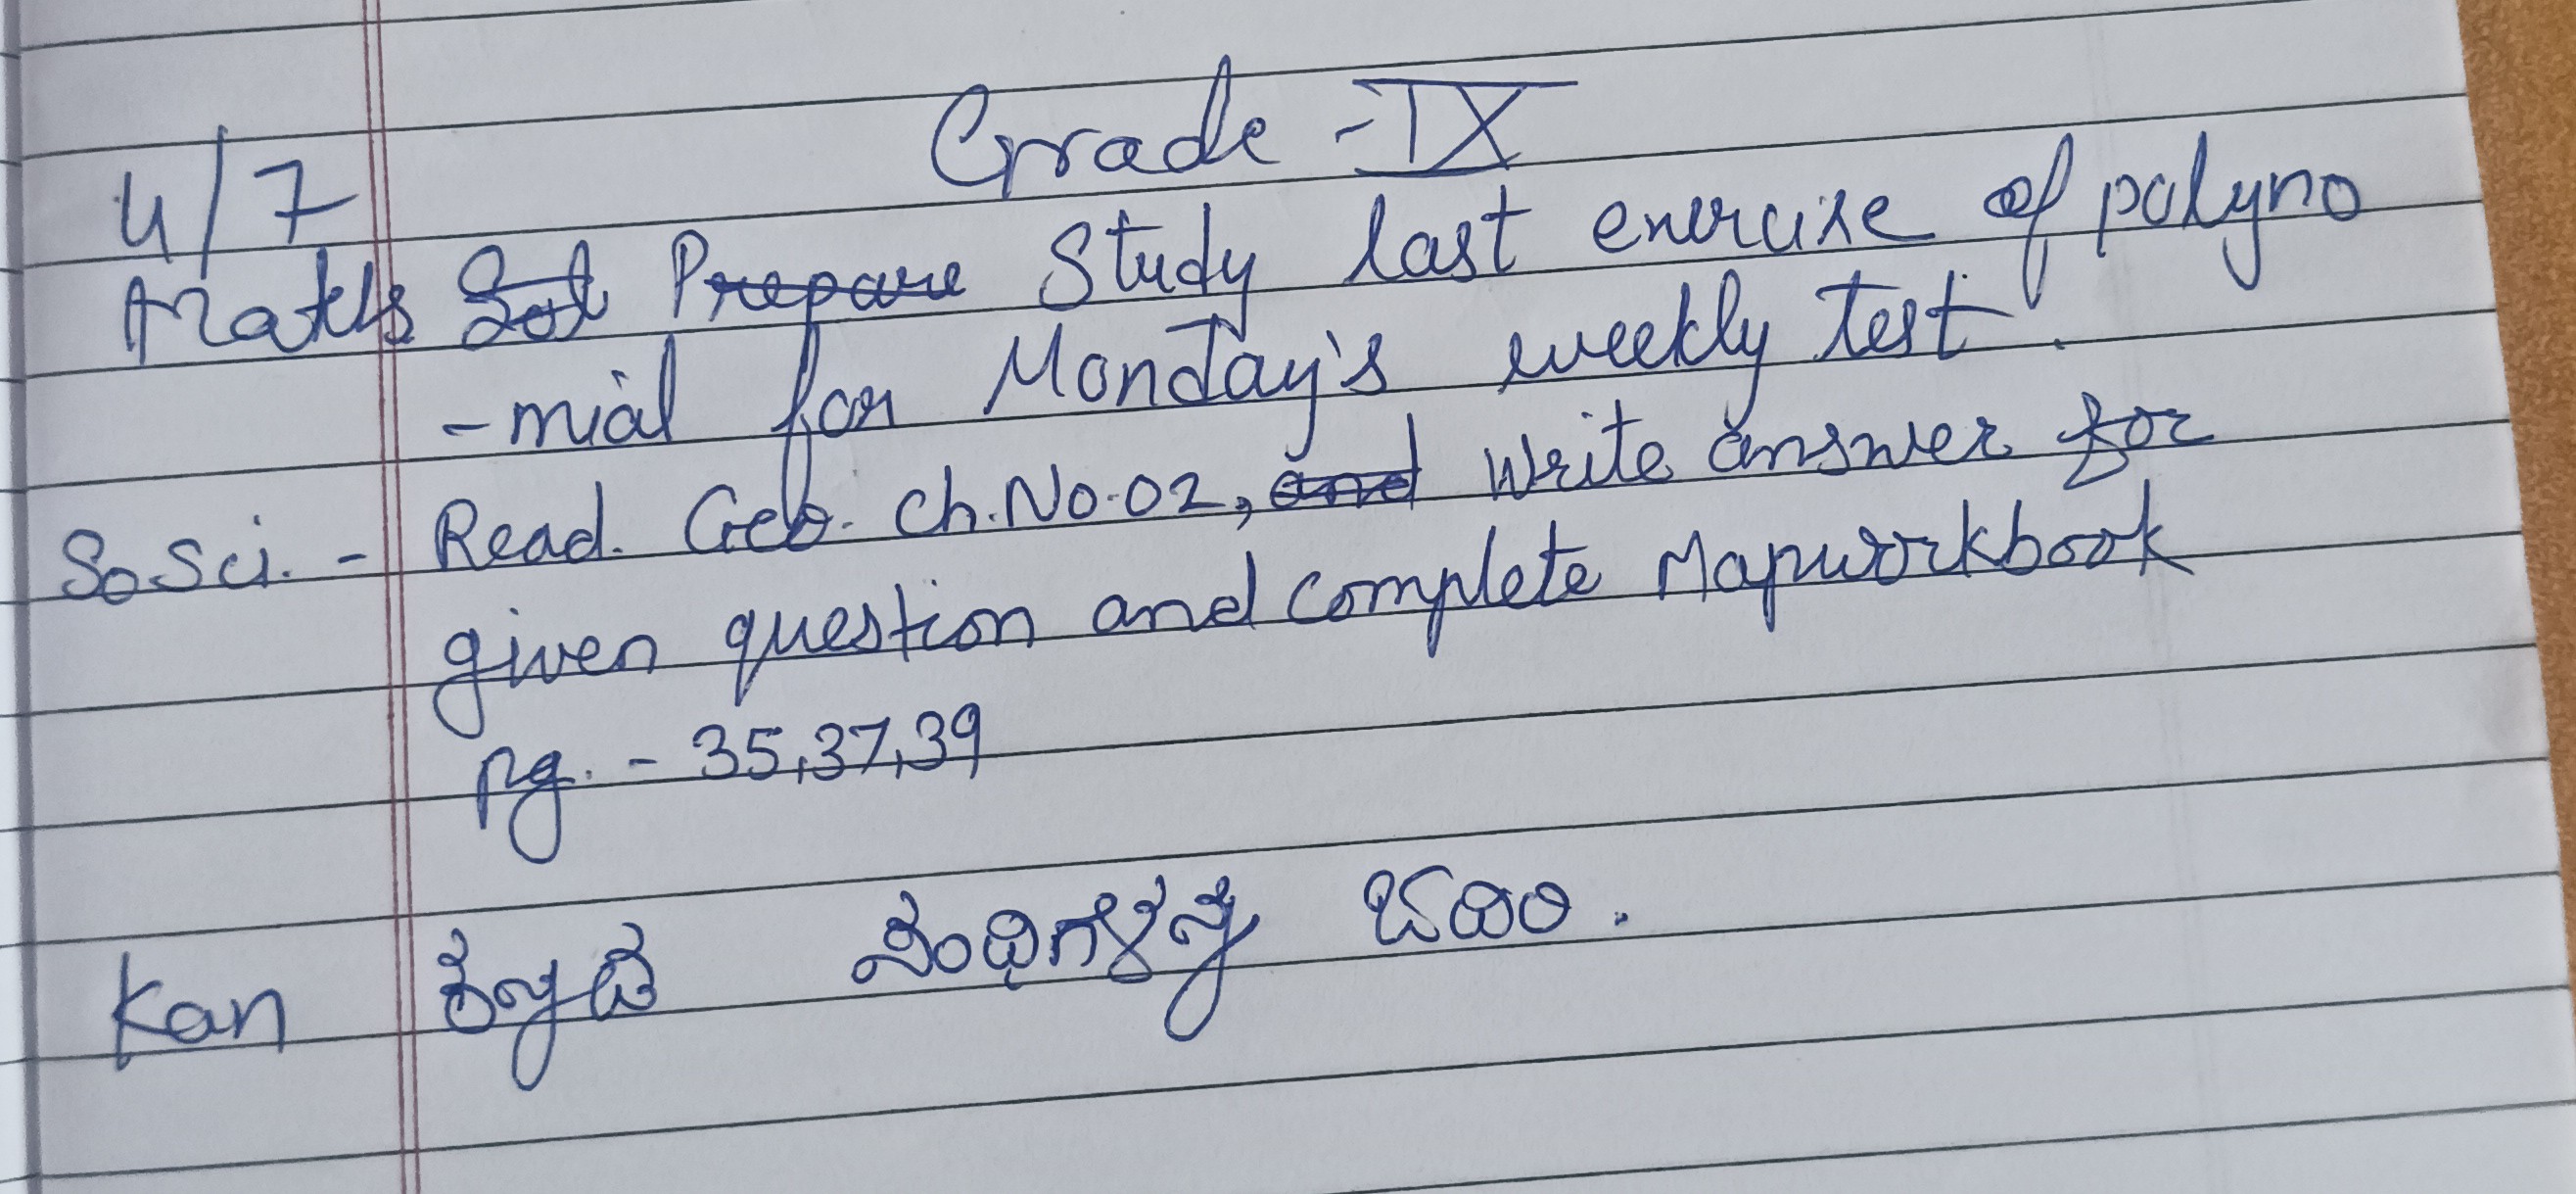 Grade - IX
4/7
Maths Study last exercise of polyno
-mial for Monday's weekly test.
So.Sci. - Read. Geo. Ch.No.02, and Write answer for
given question and complete Mapworkbook
pg. - 35,37,39
Kan ಕನ್ನಡ ಸಂಧಿಗಳನ್ನು ಬರೆದು.